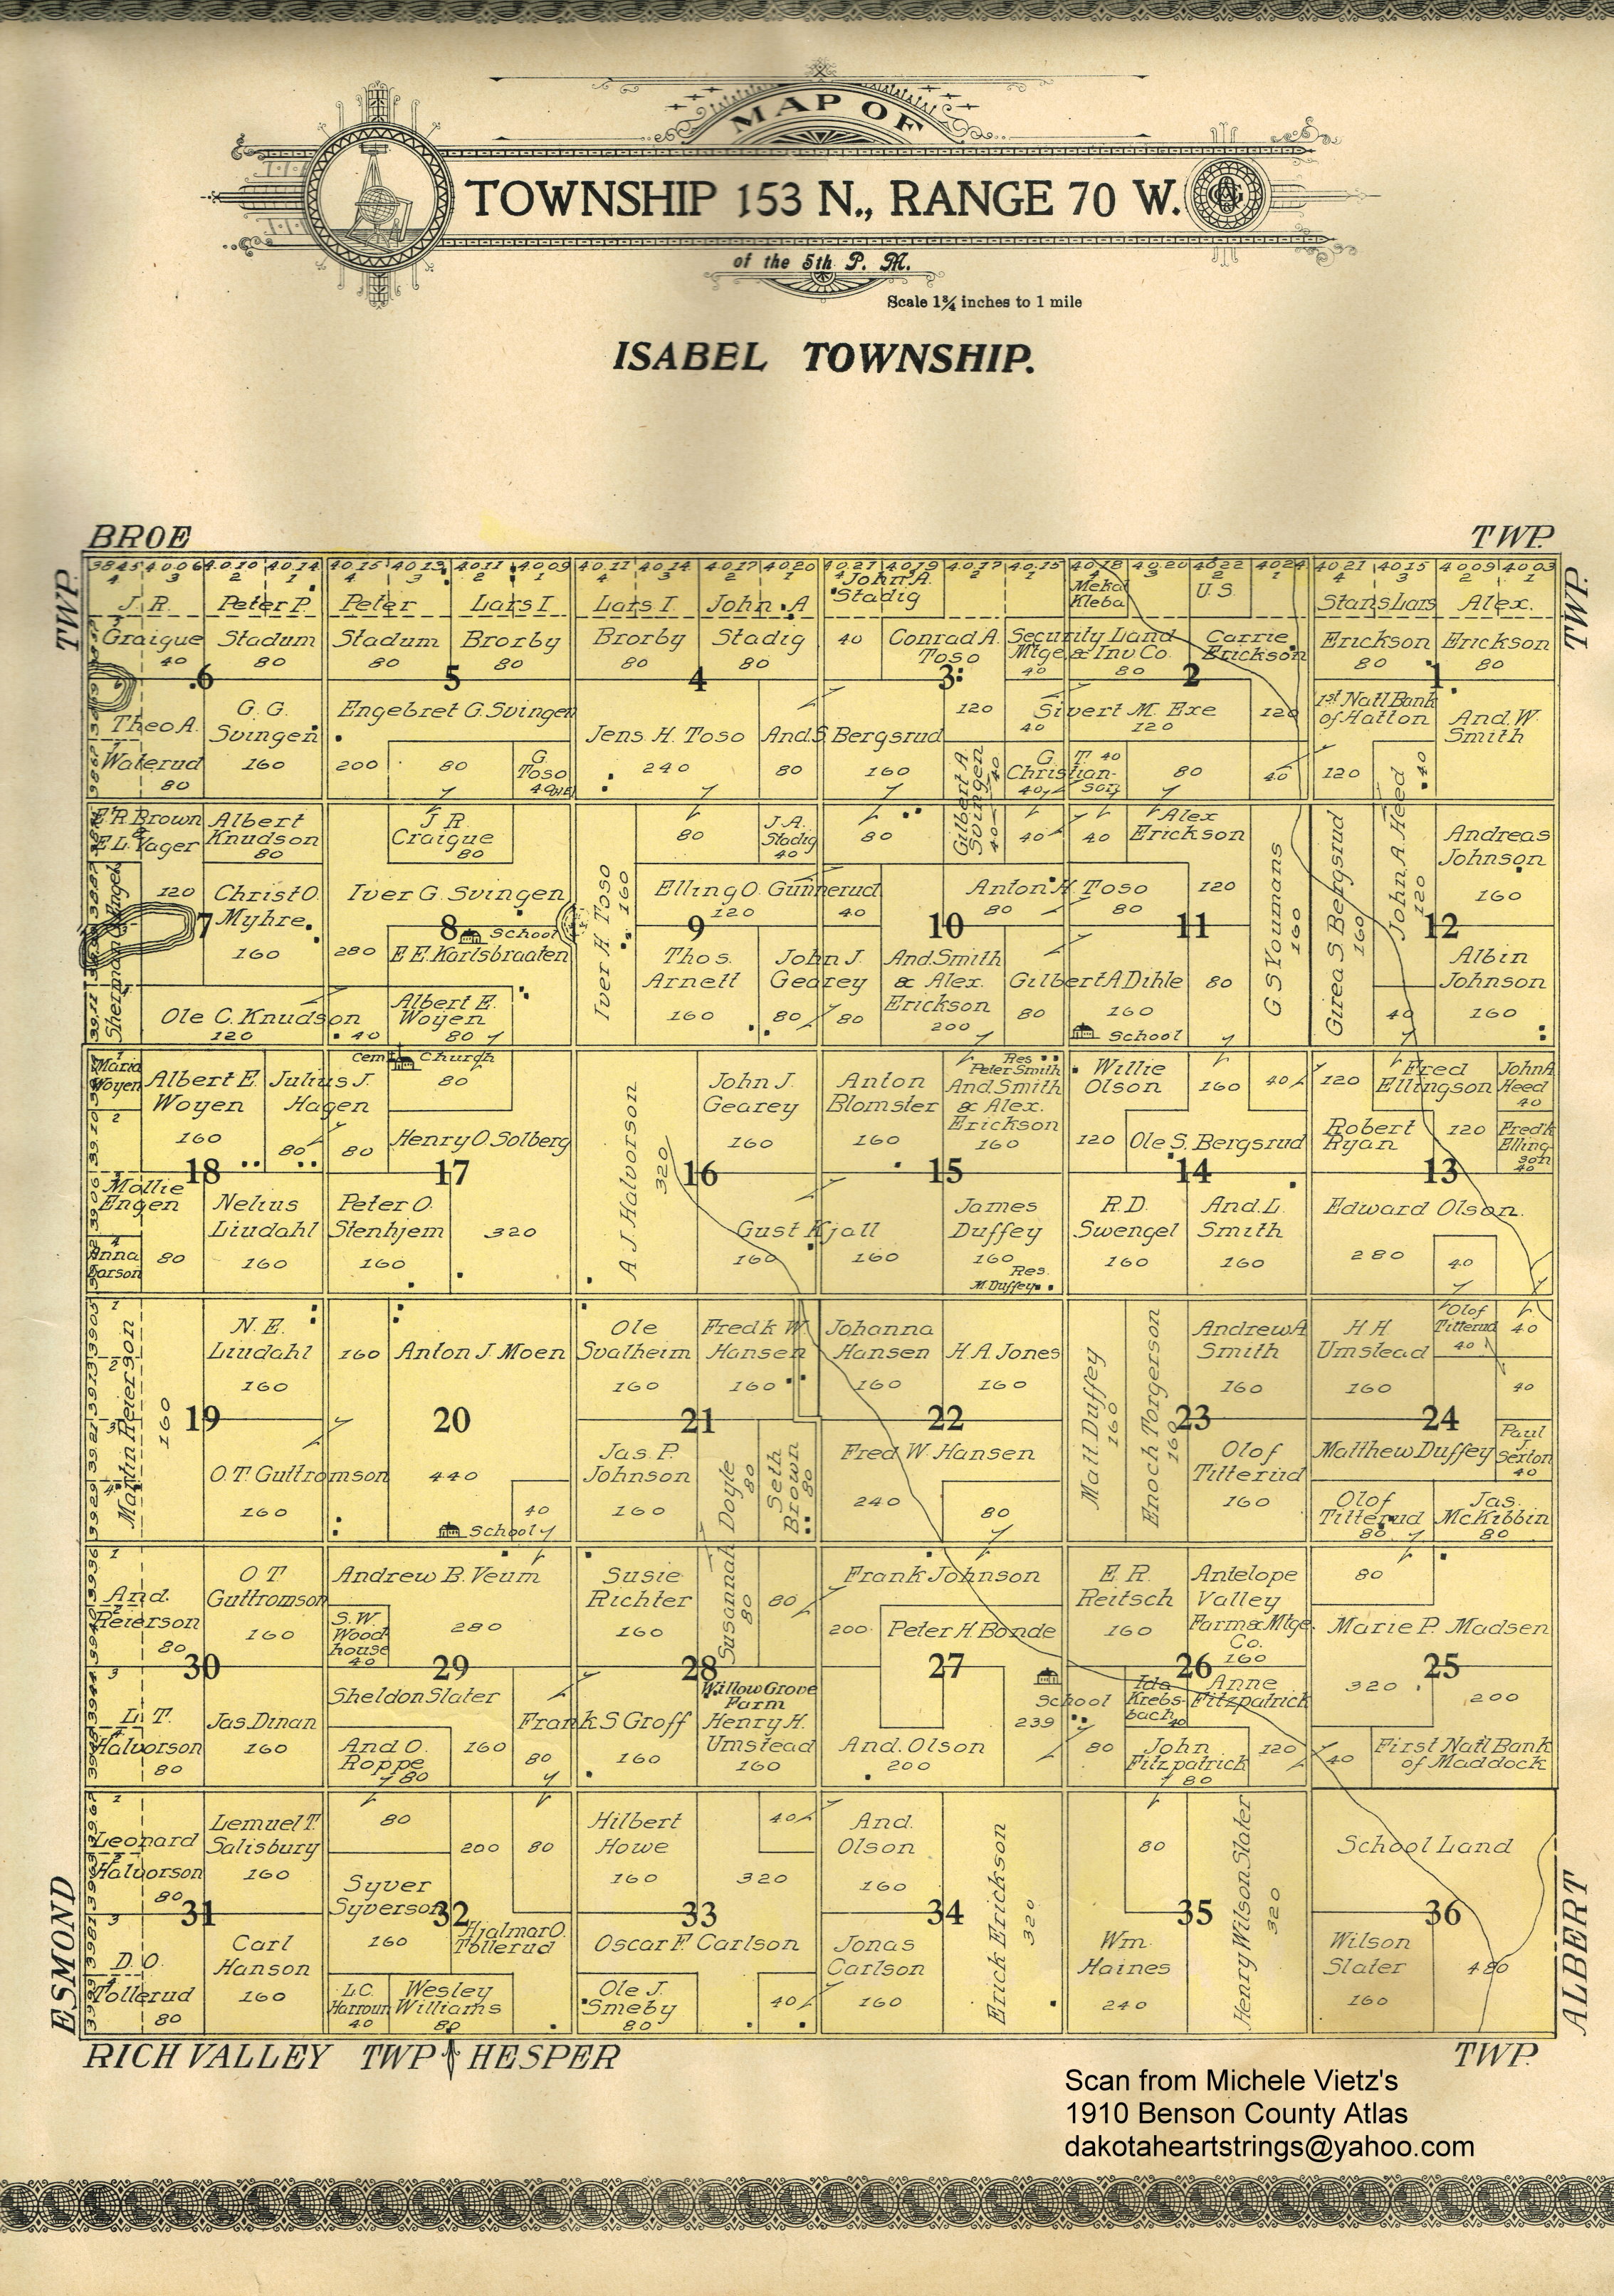 MAP OF
TOWNSHIP 153 N., RANGE 70 W.
of the 5th P. M.
Scale 1¾ inches to 1 mile
ISABEL TOWNSHIP.
BROE TWP.
TWP. TWP.
3845 4006 4010 4014 4015 4013 4011 4009 4011 4014 4017 4020 4021 4019 4017 4015 4018 4020 4022 4024 4021 4015 4009 4003
4 3 2 1 4 3 2 1 4 3 2 1
J. R. Graigue 40
Peter P. Stadum 80
Peter Stadum 80
Lars I. Brorby 80
Lars I. Brorby 80
John A Stadig 80
John A. Stadig
40
Conrad A. Toso
Security Land Mtge. & Inv Co.
40 80
Mekal Kleba
U.S.
Carrie Erickson
Stans Lars Erickson 80
Alex. Erickson 80
6 5 4 3 2 1
Theo A. Waterud 80
G. G. Svingen 160
Engebret G. Svingen
200 80
G. Toso 40
Jens H. Toso 240
And. S. Bergsrud
80 160
120
Gilbert A. Svingen 40 40
40
Sivert M. Exe 120
120
G. T. Christianson 40 40
80 40
1st Natl Bank of Hatton 120
And. W. Smith
40
E. R. Brown & E. L. Yager
Albert Knudson 80
J R. Craigue 80
80
J. A. Stadig 40
80
40 40
Alex Erickson
Andreas Johnson 160
Sherman Engel
120
Christ O. Myhre 160
Iver G. Svingen 280
School
E. E. Karlsbraaten
Iver H. Toso 160
Elling O. Gunnerud
120 40
Anton H. Toso
80 80
120
G S Youmans 160
Gurea S Bergsrud 160
John A. Heed 120
7 8 9 10 11 12
Ole C. Knudson
120 40
Albert E. Woyen 80
Thos. Arnett 160
John J. Gearey
80 80
And. Smith & Alex. Erickson 200
Gilbert A Dihle
80 160
School
80
40
Albin Johnson 160
Maria Woyen
Albert E. Woyen 160
Julius J. Hagen
80 80
Cem. Church
80
Henry O. Solberg
A. J. Halvorson 320
John J. Gearey 160
Anton Blomster 160
Res Peter Smith
And. Smith & Alex. Erickson 160
Willie Olson
120 160
40 120
Ole S. Bergsrud
Fred Ellingson
Robert Ryan
120
John A Heed 40
Fredk Ellingson 40
18 17 16 15 14 13
Mollie Engen
Anna Larson
80
Nelius Liudahl 160
Peter O. Stenhjem 160
320
Gust Kjall
160 160
James Duffey 160
Res. M. Duffey
R. D. Swengel 160
And. L. Smith 160
Edward Olson.
280 40
Martin Reierson 160
N. E. Liudahl 160
160
Anton J. Moen
Ole Svalheim 160
Fredk W. Hansen 160
Johanna Hansen 160
H. A. Jones 160
Matt. Duffey 160
Enoch Torgerson 160
Andrew A Smith 160
H H Umstead 160
Olof Titterud 40
40
40
19 20 21 22 23 24
O. T. Guttromson 160
440 40
School
Jas. P. Johnson 160
Susannah Doyle
80 80
Seth Brown 80
Fred W. Hansen
240 80
Olof Titterud 160
Matthew Duffey
Paul J. Sexton 40
Olof Titterud 80
Jas. McKibbin 80
And. Reierson 80
O T Guttromson 160
Andrew B. Veum 280
S. W. Woodhouse 40
Susie Richter 160
80
Frank Johnson 200
Peter H. Bonde
E. R. Reitsch 160
Antelope Valley Farm & Mtge. Co. 160
80
Marie P. Madsen
30 29 28 27 26 25
L. T. Halvorson 80
Jas. Dinan 160
Sheldon Slater 160
And O. Roppe 80
Frank S Groff
80 160
Willow Grove Farm
Henry H. Umstead 160
And. Olson 200
School
239
Ida Krebsbach 40
Anne Fitzpatrick
80
John Fitzpatrick 80
120 40
320
200
First Natl Bank of Maddock
Leonard Halvorson 80
Lemuel T. Salisbury 160
80
200 80
Hilbert Howe 160
40
320
And. Olson 160
Erick Erickson 320
80
Henry Wilson Slater 320
School Land
31 32 33 34 35 36
D. O. Tollerud 80
Carl Hanson 160
Syver Syverson 160
Hjalmar O. Tollerud
L. C. Harroun 40
Wesley Williams 80
Oscar F. Carlson
Ole J. Smeby 80
40
Jonas Carlson 160
Wm. Haines 240
Wilson Slater 160
480
ESMOND ALBERT
RICH VALLEY TWP HESPER TWP.
Scan from Michele Vietz's
1910 Benson County Atlas
dakotaheartstrings@yahoo.com